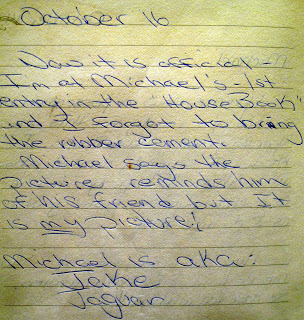 October 16
Now it is official -
I'm at Michael's - 1st
entry in the "HouseBook"
and I forgot to bring
the rubber cement.
Michael says the
picture reminds him
of his friend but It
is my picture!
Michael is aka:
Jake
Jaguar